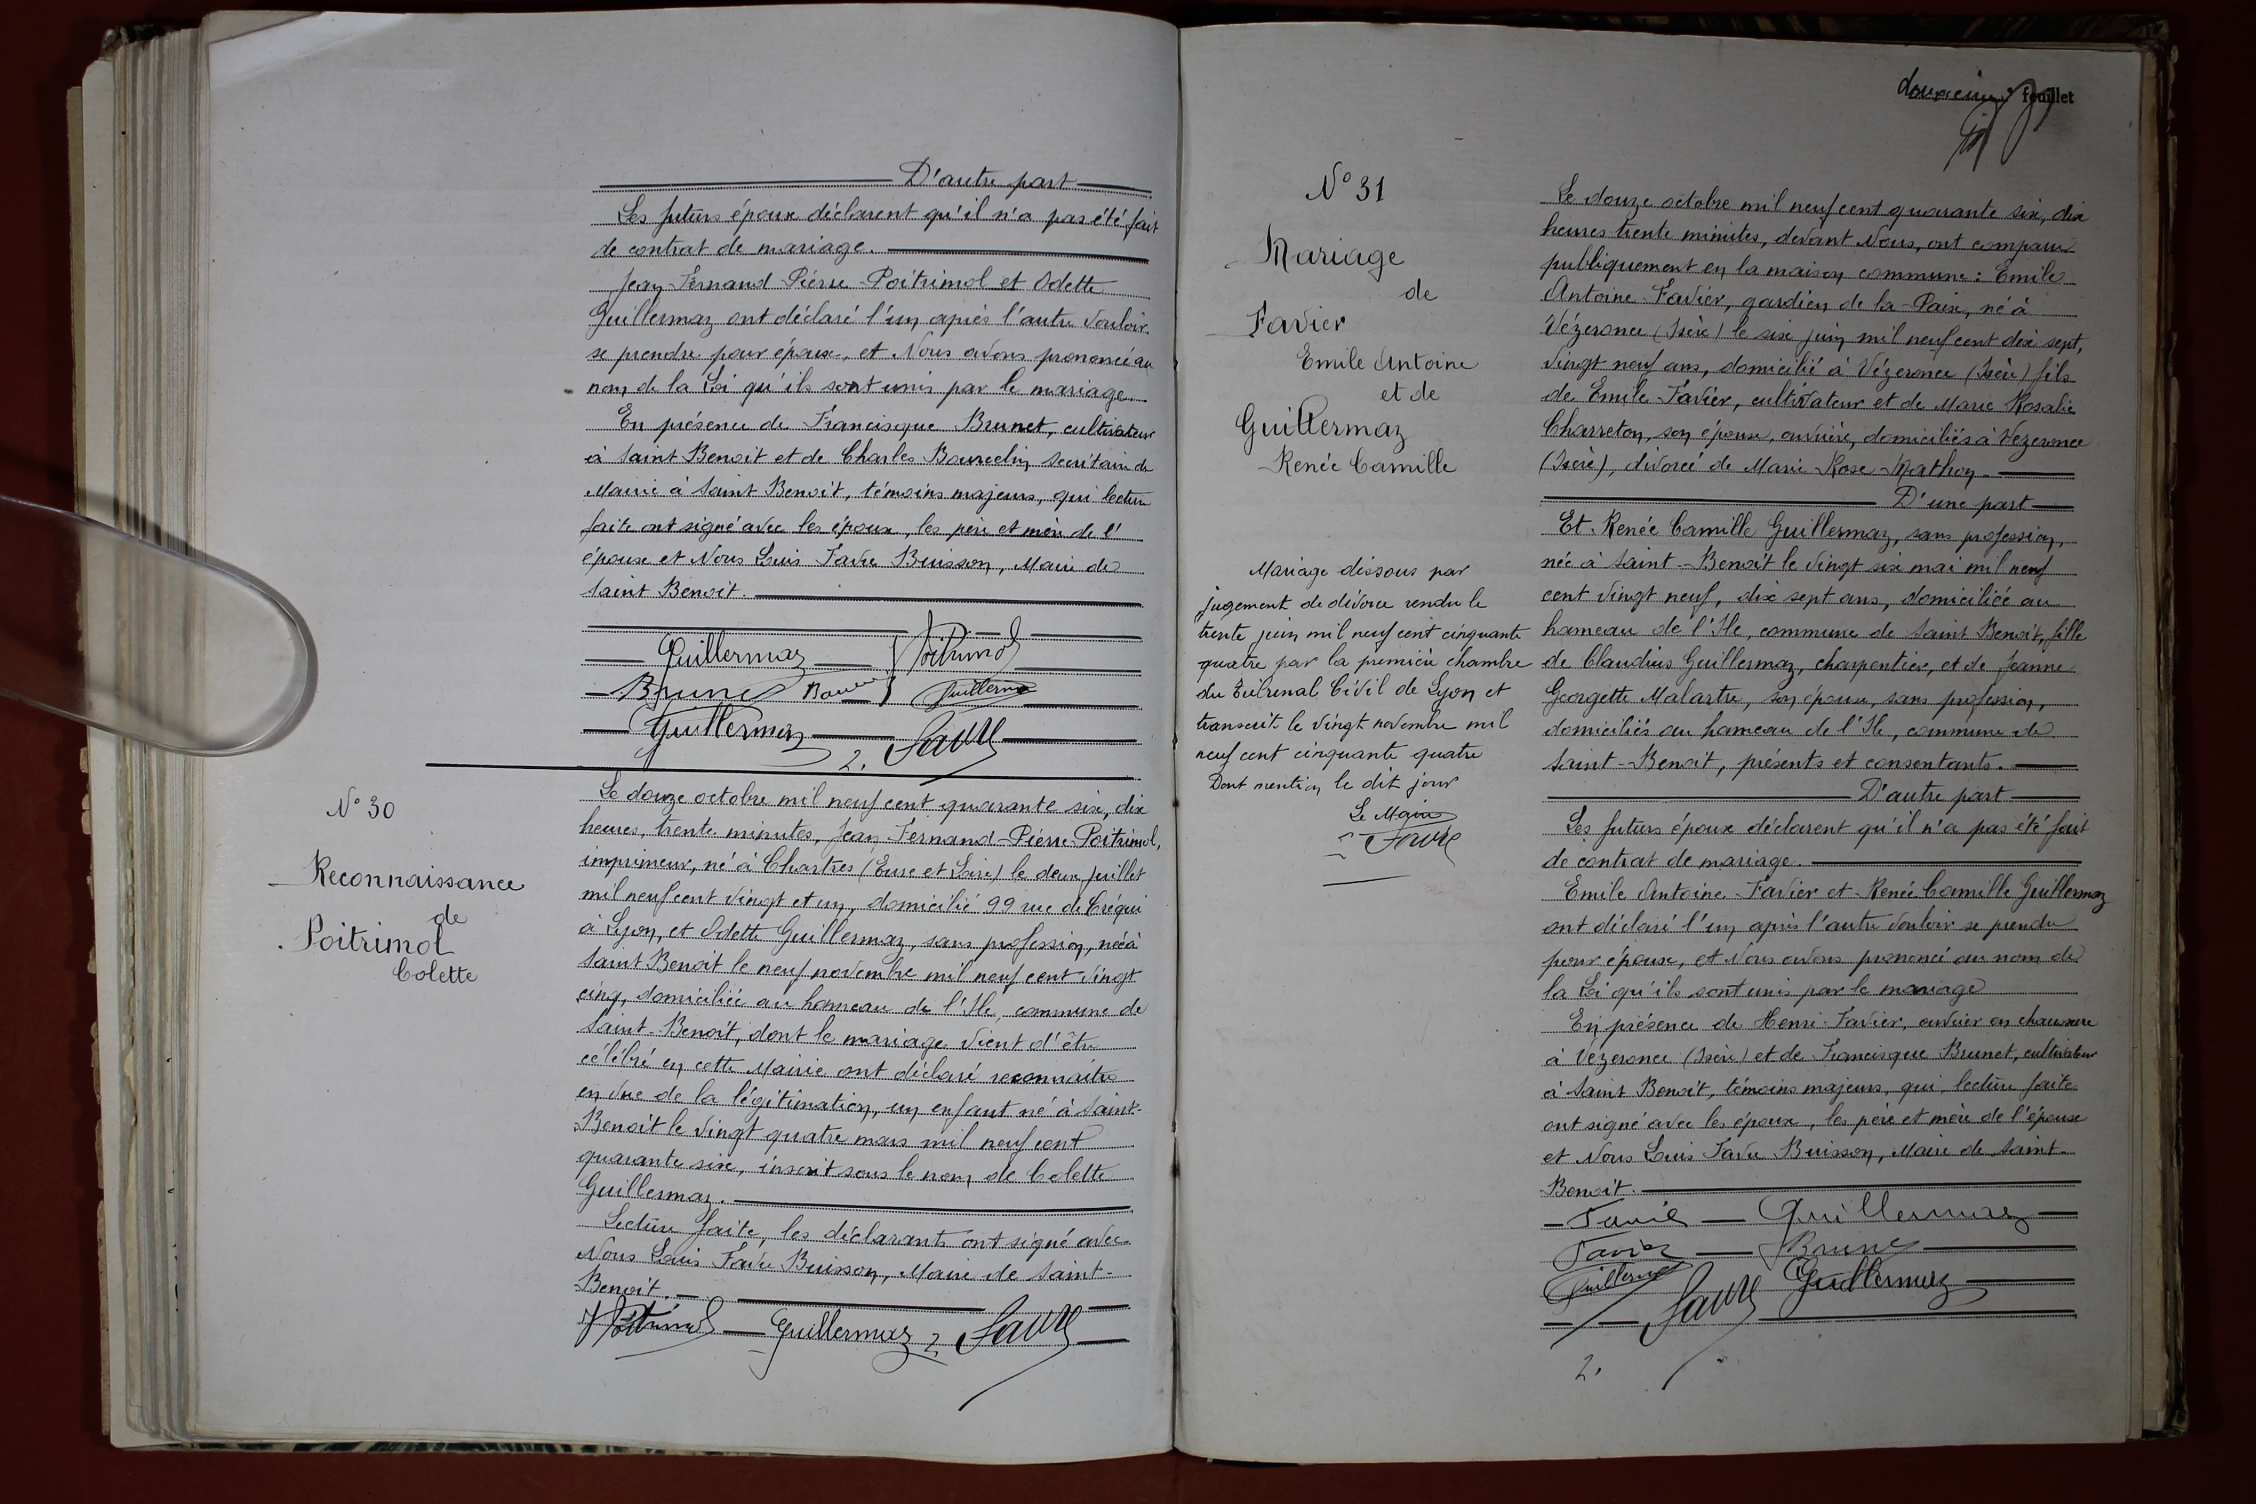 D'autre part
Les futurs époux déclarent qu'il n'a pas été fait
de contrat de mariage.
Jean Fernand Pierre Poitrimol et Odette
Guillermaz ont déclaré l'un après l'autre vouloir
se prendre pour époux, et Nous avons prononcé au
nom de la Loi qu'ils sont unis par le mariage.
En présence de Francisque Brunet, cultivateur
à Saint Benoit et de Charles Bourcelin secrétaire de
Mairie à Saint Benoit, témoins majeurs, qui lecture
faite ont signé avec les époux, les père et mère de l'
épouse et Nous Louis Favre Buisson, Maire de
Saint Benoit.
Guillermaz Poitrimol
Brunet Guillermaz
Guillermaz 2. Favre
N° 30
Reconnaissance
de
Poitrimol
Colette
Le douze octobre mil neuf cent quarante six, dix
heures, trente minutes, Jean Fernand Pierre Poitrimol,
imprimeur, né à Chartres (Eure et Loire) le deux juillet
mil neuf cent vingt et un, domicilié 99 rue de Créqui
à Lyon, et Odette Guillermaz, sans profession, née à
Saint Benoit le neuf novembre mil neuf cent vingt
cinq, domiciliée au hameau de l'Ile, commune de
Saint-Benoit, dont le mariage vient d'être
célébré en cette Mairie ont déclaré reconnaitre
en vue de la légitimation, un enfant né à Saint-
Benoit le vingt quatre mars mil neuf cent
quarante six, inscrit sous le nom de Colette
Guillermaz.
Lecture faite, les déclarants ont signé avec
Nous Louis Favre Buisson, Maire de Saint-
Benoit.
Poitrimol Guillermaz 2 Favre
douzième feuillet
N° 31
Mariage
de
Favier
Emile Antoine
et de
Guillermaz
Renée Camille
Mariage dissous par
jugement de divorce rendu le
trente juin mil neuf cent cinquante
quatre par la première chambre
du Tribunal Civil de Lyon et
transcrit le vingt novembre mil
neuf cent cinquante quatre
Dont mention le dit jour
Le Maire
Favre
Le douze octobre mil neuf cent quarante six, dix
heures trente minutes, devant Nous, ont comparu
publiquement en la maison commune: Emile
Antoine Favier, gardien de la Paix, né à
Vézeronce (Isère) le six juin mil neuf cent dix sept,
vingt neuf ans, domicilié à Vézeronce (Isère) fils
de Emile Favier, cultivateur et de Marie Rosalie
Charreton, son épouse, ouvrière, domiciliés à Vézeronce
(Isère), divorcé de Marie Rose Mathon.
D'une part
Et Renée Camille Guillermaz, sans profession,
née à Saint-Benoit le vingt six mai mil neuf
cent vingt neuf, dix sept ans, domiciliée au
hameau de l'Ile, commune de Saint Benoit, fille
de Claudius Guillermaz, charpentier, et de Jeanne
Georgette Malartre, son épouse, sans profession,
domiciliés au hameau de l'Ile, commune de
Saint-Benoit, présents et consentants.
D'autre part
Les futurs époux déclarent qu'il n'a pas été fait
de contrat de mariage.
Emile Antoine Favier et Renée Camille Guillermaz
ont déclaré l'un après l'autre vouloir se prendre
pour époux, et Nous avons prononcé au nom de
la Loi qu'ils sont unis par le mariage
En présence de Henri Favier, ouvrier en chaussure
à Vézeronce (Isère) et de Francisque Brunet, cultivateur
à Saint Benoit, témoins majeurs, qui, lecture faite
ont signé avec les époux, les père et mère de l'épouse
et Nous Louis Favre Buisson, Maire de Saint-
Benoit.
Favier Guillermaz
Favier Brunet
Guillermaz Favre Guillermaz
2.